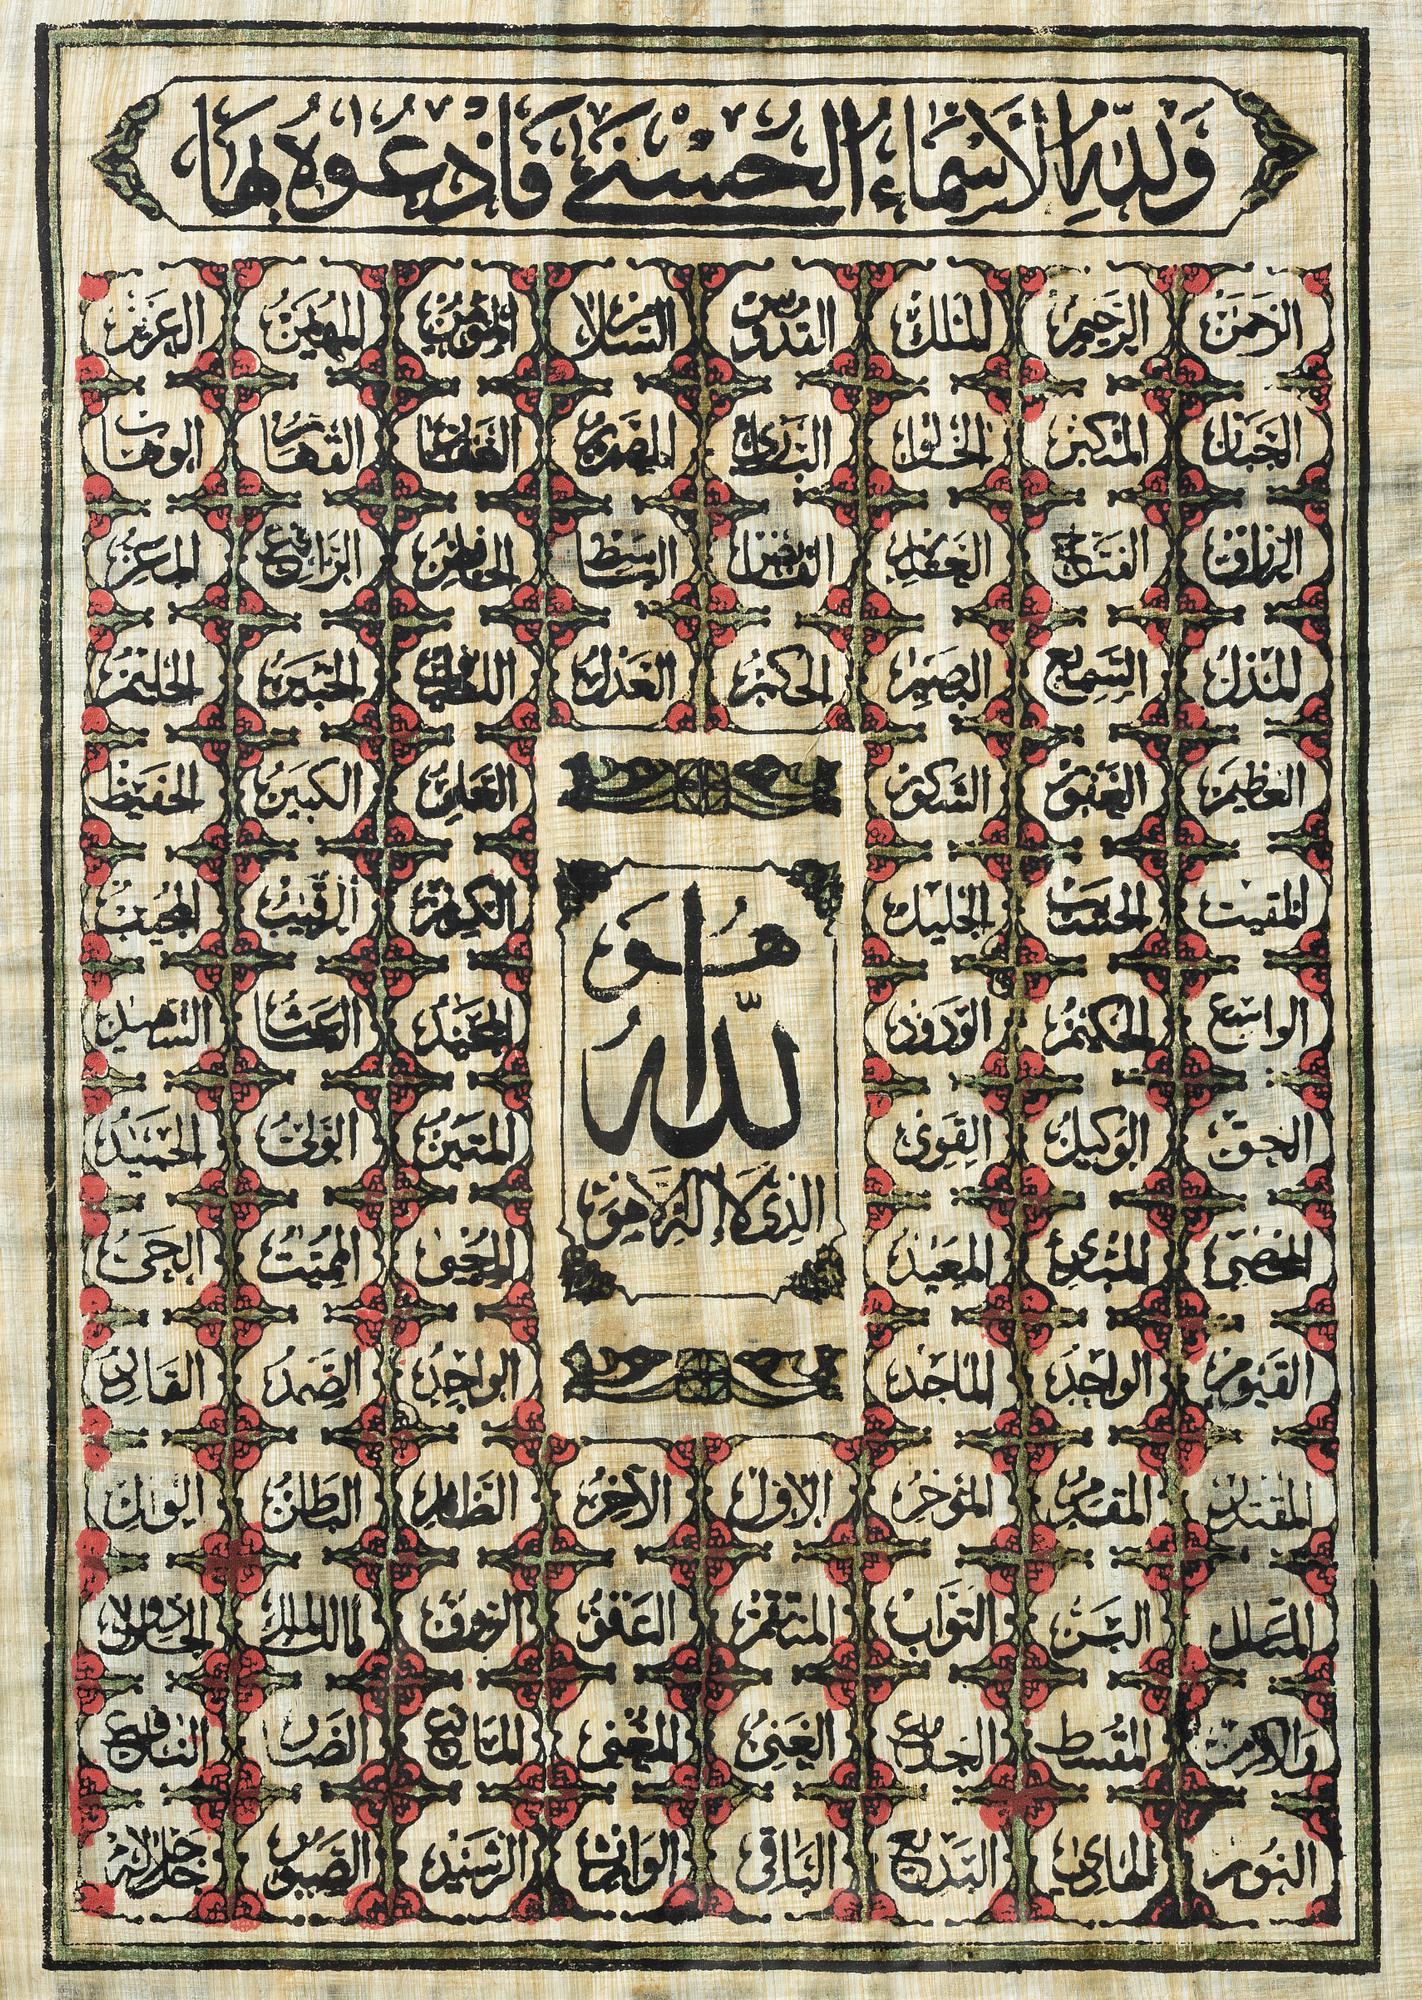 وَلِلَّهِ الْأَسْمَاءُ الْحُسْنَى فَادْعُوهُ بِهَا
الرحمن الرحيم الملك القدوس السلام المؤمن المهيمن العزيز
الجبار المتكبر الخالق البارئ المصور الغفار القهار الوهاب
الرزاق الفتاح العليم القابض الباسط الخافض الرافع المعز
المذل السميع البصير الحكم العدل اللطيف الخبير الحليم
العظيم الغفور الشكور العلي الكبير الحفيظ
المقيت الحسيب الجليل الكريم الرقيب المجيب
هو
الله
الذي لا إله إلا هو
الواسع الحكيم الودود المجيد الباعث الشهيد
الحق الوكيل القوي المتين الولي الحميد
المحصي المبدئ المعيد المحيي المميت الحي
القيوم الواجد الماجد الواحد الصمد القادر
المقتدر المقدم المؤخر الأول الآخر الظاهر الباطن الوالي
المتعال البر التواب المنتقم العفو الرؤوف مالك الملك ذو الجلال
والإكرام المقسط الجامع الغني المغني المانع الضار النافع
النور الهادي البديع الباقي الوارث الرشيد الصبور جل جلاله